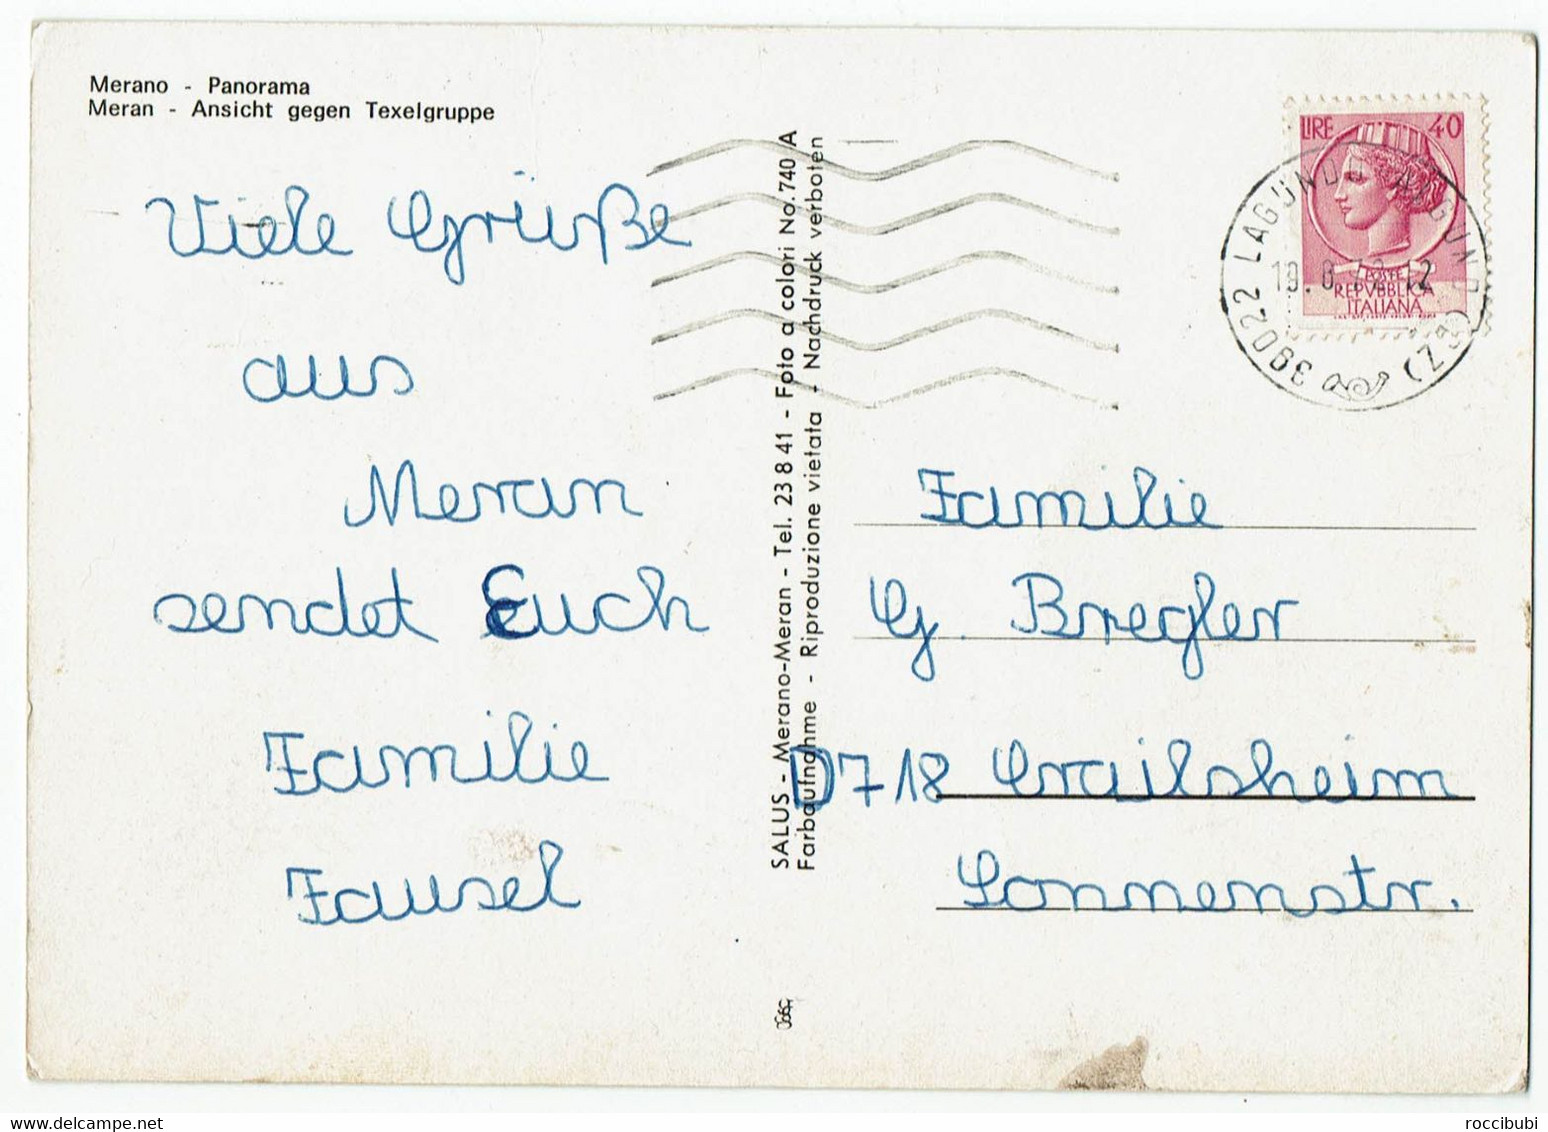 Merano - Panorama
Meran - Ansicht gegen Texelgruppe
Viele Grüße
aus
Meran
sendet Euch
Familie
Fausel
SALUS - Merano-Meran - Tel. 23 8 41 - Foto a colori No. 740 A
Farbaufnahme - Riproduzione vietata - Nachdruck verboten
LIRE 40
POSTE
REPVBBLICA
ITALIANA
39022 LAGUNDO ALGUND (BZ)
Familie
G. Bregler
D718 Crailsheim
Sonnenstr.
www.delcampe.net
roccibubi